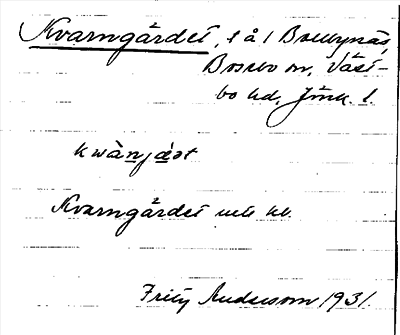 Kvarngärdet, l å l Bolbynäs,
Bosebo sn, Väst-
bo hd, Jönk. l.
kwàn̲jæ̲ət
Kvarngärdet urk kb.
Fritz Andersson 1931.